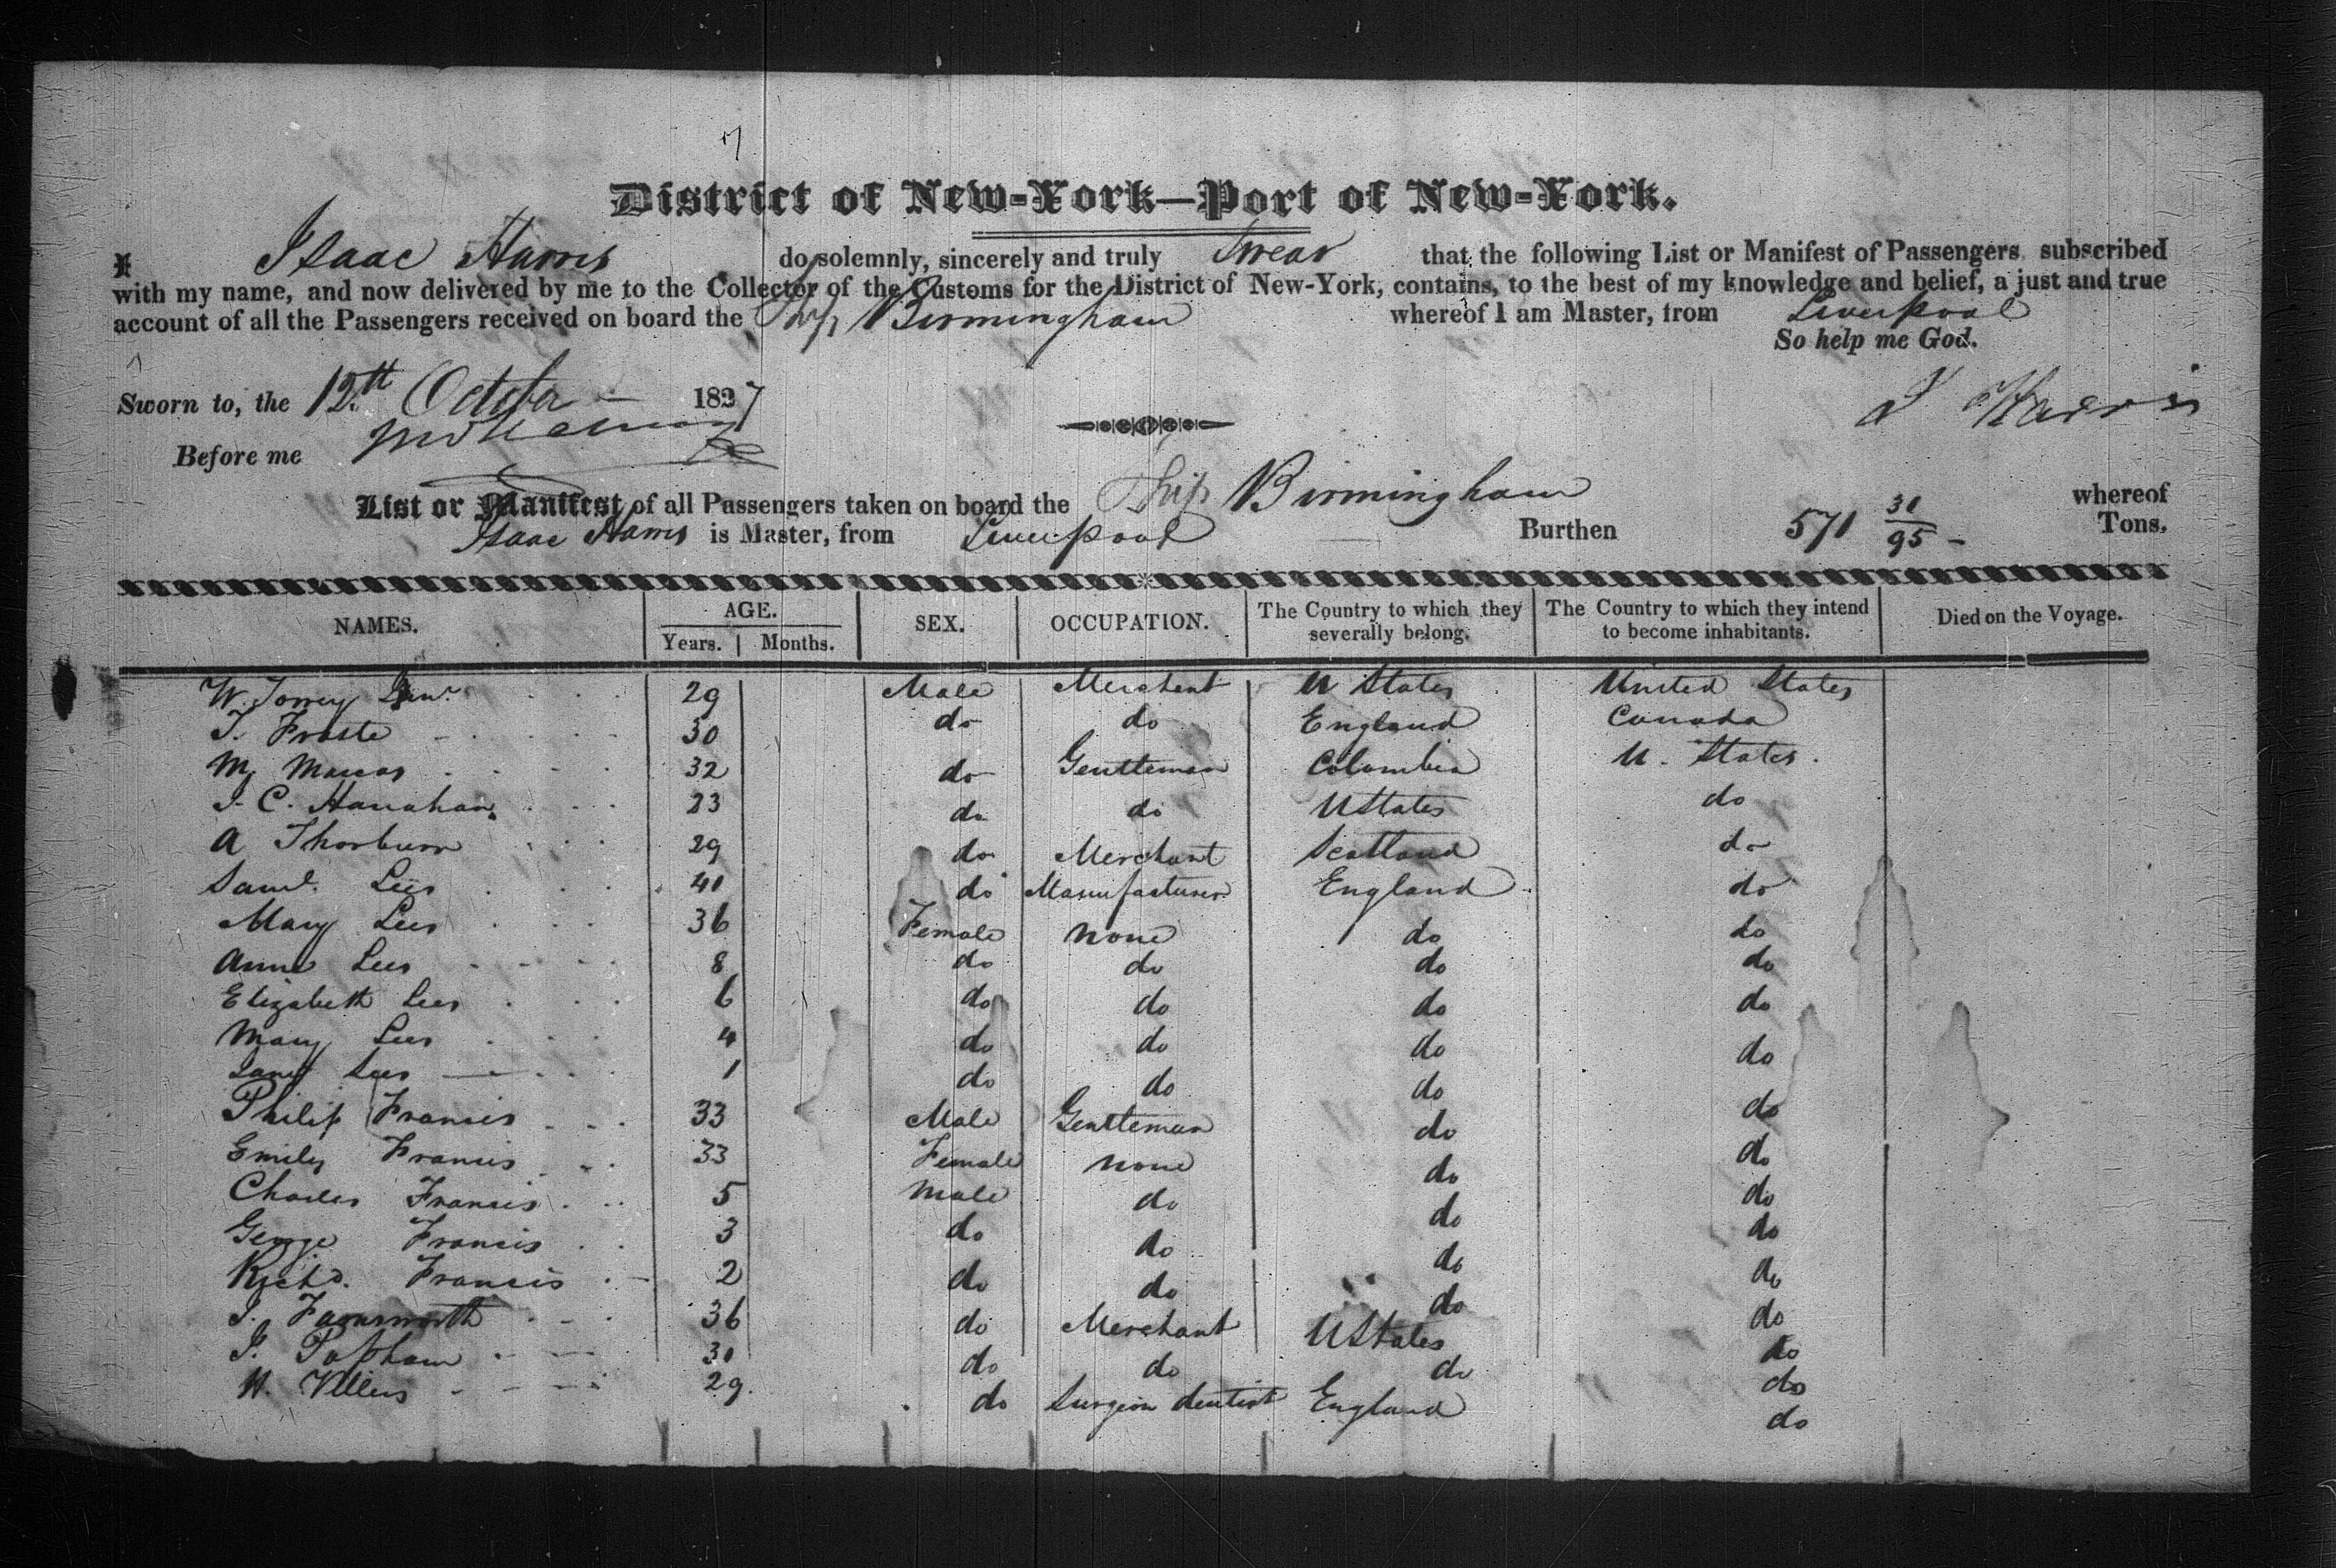 7
District of New-York—Port of New-York.
I Isaac Harris do solemnly, sincerely and truly Swear that the following List or Manifest of Passengers subscribed
with my name, and now delivered by me to the Collector of the Customs for the District of New-York, contains, to the best of my knowledge and belief, a just and true
account of all the Passengers received on board the Ship Birmingham whereof I am Master, from Liverpool
So help me God.
Sworn to, the 12th October 1827
I Harris
Before me
List or Manifest of all Passengers taken on board the Ship Birmingham whereof
Isaac Harris is Master, from Liverpool Burthen 571 31/95 Tons.
NAMES. AGE. SEX. OCCUPATION. The Country to which they severally belong. The Country to which they intend to become inhabitants. Died on the Voyage.
Years. Months.
W. Torrey Junr 29 Male Merchant U States United States
T. Froste 30 do do England Canada
32 do Gentleman Columbia U. States.
I. C. Hanahan 23 do do U States do
A Thorburn 29 do Merchant Scotland do
Saml. Lees 40 do Manufacturer England do
Mary Lees 36 Female none do do
Anne Lees 8 do do do do
Elizabeth Lees 6 do do do do
Mary Lees 4 do do do do
Jane Lees 1 do do do do
Philip Francis 33 Male Gentleman do do
Emily Francis 33 Female none do do
Charles Francis 5 Male do do do
George Francis 3 do do do do
Richd. Francis 2 do do do do
I. Farnsworth 36 do Merchant U States do
I. Popham 30 do do do do
W. Villers 29 do Surgeon dentist England do